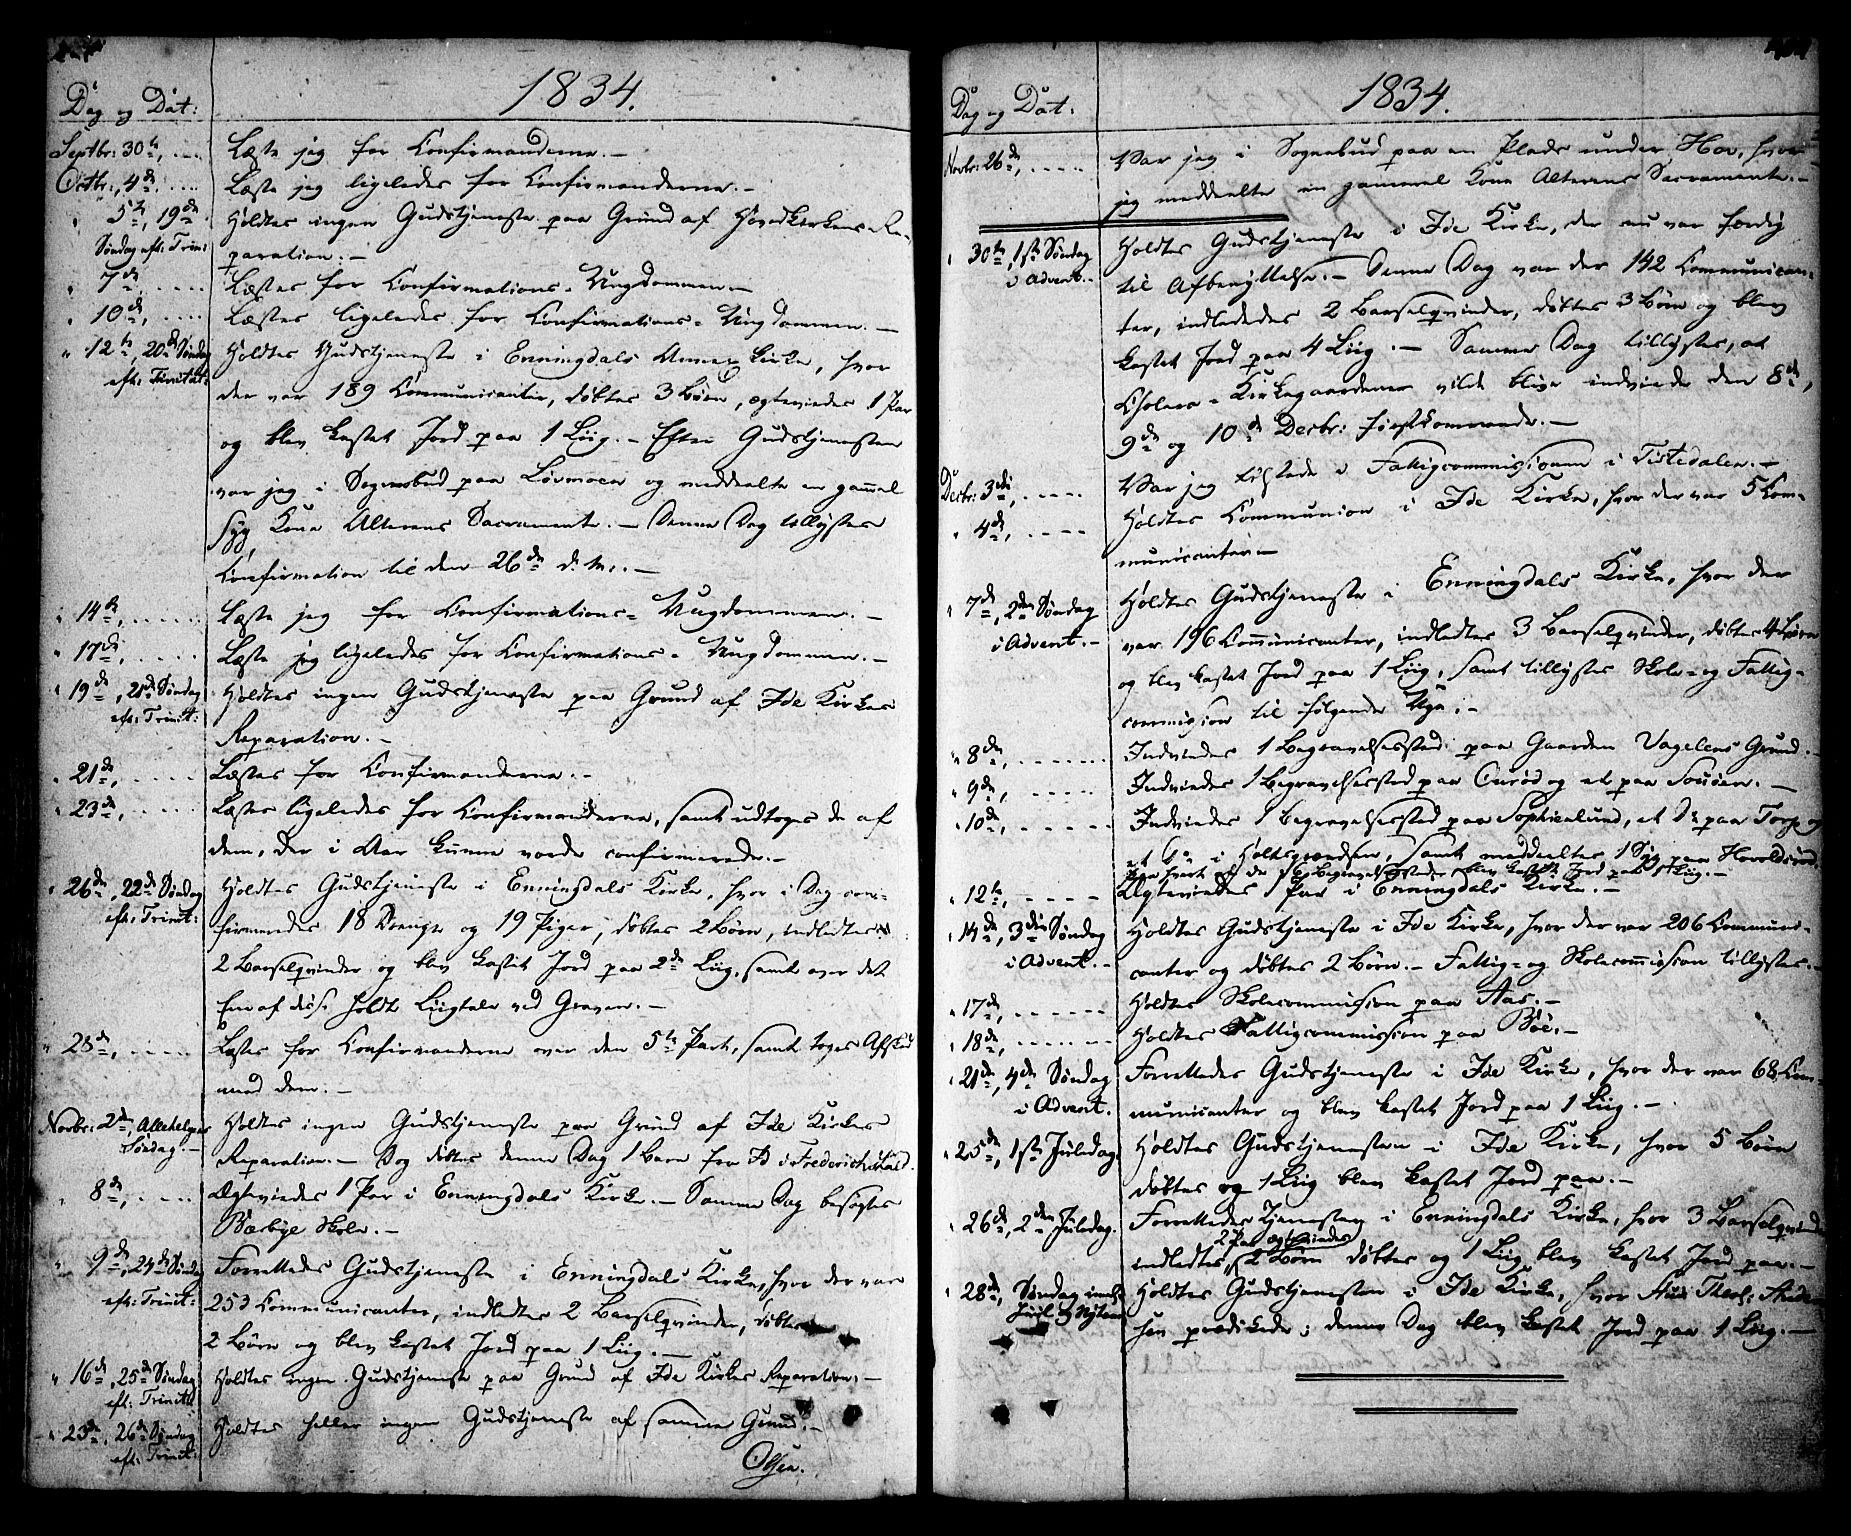 1834.
Dag og Dat:
Septbr: 30te, .... Læste jeg for Confirmanderne. -
Octbr., 4de .... Læste jeg ligeledes for Confirmanderne. -
" 5te, 19de Holdtes ingen Gudstjeneste paa Grund af Hovedkirkens Re-
Søndag eft: Trin: paration. -
" 7de, .... Læstes for Confirmations-Ungdommen. -
" 10de, .... Læstes ligeledes for Confirmations-Ungdommen. -
" 12te, 20de Søndag Holdtes Gudstjeneste i Enningdals Annex kirke, hvor
eft: Trinitat: der var 189 Communicanter, døbtes 3 Børn, ægteviedes 1 Par
og blev kastet Jord paa 1 Liig. - Efter Gudstjenesten
var jeg i Sognebud paa Løvmoen og meddeelte en gammel
syg Kone Alterens Sacramente. - Denne Dag tillystes
Confirmation til den 26de d. M. -
" 14de, .... Læste jeg for Confirmations-Ungdommen. -
" 17de, .... Læste jeg ligeledes for Confirmations-Ungdommen. -
" 19de, 21de Søndag Holdtes ingen Gudstjeneste paa Grund af Ide Kirkes
eft: Trinit: Reparation. -
" 21de, .... Læstes for Confirmanderne. -
" 23de, .... Læstes ligeledes for Confirmanderne, samt udtoges de af
dem, der i Aar kunne vorde confirmerede. -
" 26de, 22de Søndag Holdtes Gudstjeneste i Enningdals Kirke, hvor i Dag con-
eft: Trinit: firmeredes 18 Drenge og 19 Piger, døbtes 2 Børn, indledtes
2 Barselqvinder og blev kastet Jord paa 2de Liig, samt over det
Ene af disse holdt Liigtale ved Graven. -
" 28de, .... Læstes for Confirmanderne over den 5te Part, samt toges Afsked
med dem. -
Novbr: 2de, Allehelgens Holdtes ingen Gudstjeneste paa Grund af Ide Kirkes
Søndag. - Reparation. - Dog døbtes denne Dag 1 Barn for Id i Frederichshald.
" 8de, .... Ægteviedes 1 Par i Enningdals Kirke. - Samme Dag besøgtes
Bærbye Skole. -
" 9de, 24de Søndag Forrettedes Gudstjeneste i Enningdals Kirke, hvor der var
eft: Trinit: 253 Communicanter, indledtes 2 Barselqvinder, døbtes
2 Børn og blev kastet Jord paa 1 Liig. -
" 16de, 25de Søndag Holdtes ingen Gudstjeneste paa Grund af Ide Kirkes Reparation. -
eft: Trinit:
" 23de, 26de Søndag Holdtes heller ingen Gudstjeneste af samme Grund. -
eft: Trinit: Olsen.
1834.
Dag og Dat:
Novbr: 26de, .... Var jeg i Sognebud paa en Plads under Hov, hvor
jeg meddeelte en gammel Kone Alterens Sacramente. -
" 30te, 1ste Søndag Holdtes Gudstjeneste i Ide Kirke, der nu var færdig
i Advent. - til Afbenyttelse. - Denne Dag var der 142 Communican-
ter, indledes 2 Barselqvinder, døbtes 3 Børn og blev
kastet Jord paa 4 Liig. - Samme Dag tillystes, at
Cholera-Kirkegaardene vilde blive indviede den 8de,
9de og 10de Decbr: førstkommende. -
Decbr: 3die, .... Var jeg tilstede i Fattigcommissionen i Tistedalen. -
" 4de, .... Holdtes Communion i Ide Kirke, hvor der var 5 Com-
municanter. -
" 7de, 2den Søndag Holdtes Gudstjeneste i Enningdals Kirke, hvor der
i Advent. - var 196 Communicanter, indledtes 3 Barselqvinder, døbtes 4 Børn
og blev kastet Jord paa 1 Liig, samt tillystes Skole- og Fattig-
commission til følgende Uge. -
" 8de, .... Indviedes 1 Begravelsessted paa Gaarden Vagelens Grund. -
" 9de, .... Indviedes 1 Begravelsessted paa Curød og et paa Souøen. -
" 10de, .... Indviedes 1 Begravelsessted paa Sophienlund, et Do paa Torp og
et Do i Holtsgrændsen, samt meddeeltes 1 Syg paa Haraldsrød.
paa hvert af de 6 Begravelsessteder blev kastet Jord paa 1 Liig. -
" 12te, .... Ægteviedes 1 Par i Enningdals Kirke. -
" 14de, 3die Søndag Holdtes Gudstjeneste i Ide Kirke, hvor der var 206 Communi-
i Advent. - canter og døbtes 2 Børn. - Fattig- og Skolecommission tillystes. -
" 17de, .... Holdtes Skolecommission paa Aas. -
" 18de, .... Holdtes Fattigcommission paa Böe. -
" 21de, 4de Søndag Forrettedes Gudstjeneste i Ide Kirke, hvor der var 68 Com-
i Advent. municanter og blev kastet Jord paa 1 Liig. -
" 25de, 1ste Juledag. Holdtes Gudstjenesten i Ide Kirke, hvor 5 Børn
døbtes og 1 Liig blev kastet Jord paa. -
" 26de, 2den Juledag. Forrettedes Tjenesten i Enningdals Kirke, hvor 3 Barselqvinder
2 Par ægteviedes
indledtes, 2 Børn døbtes og 1 Liig blev kastet Jord paa. -
" 28de, Søndag imell: Holdtes Gudstjenesten i Ide Kirke, hvor Stud: Theol: Ander-
Juul og Nytaar sen prædikede; denne Dag blev kastet Jord paa 1 Liig. -